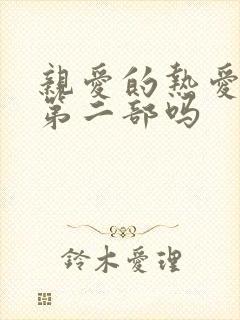 親愛的熱愛
第二部吗
鈴木愛理